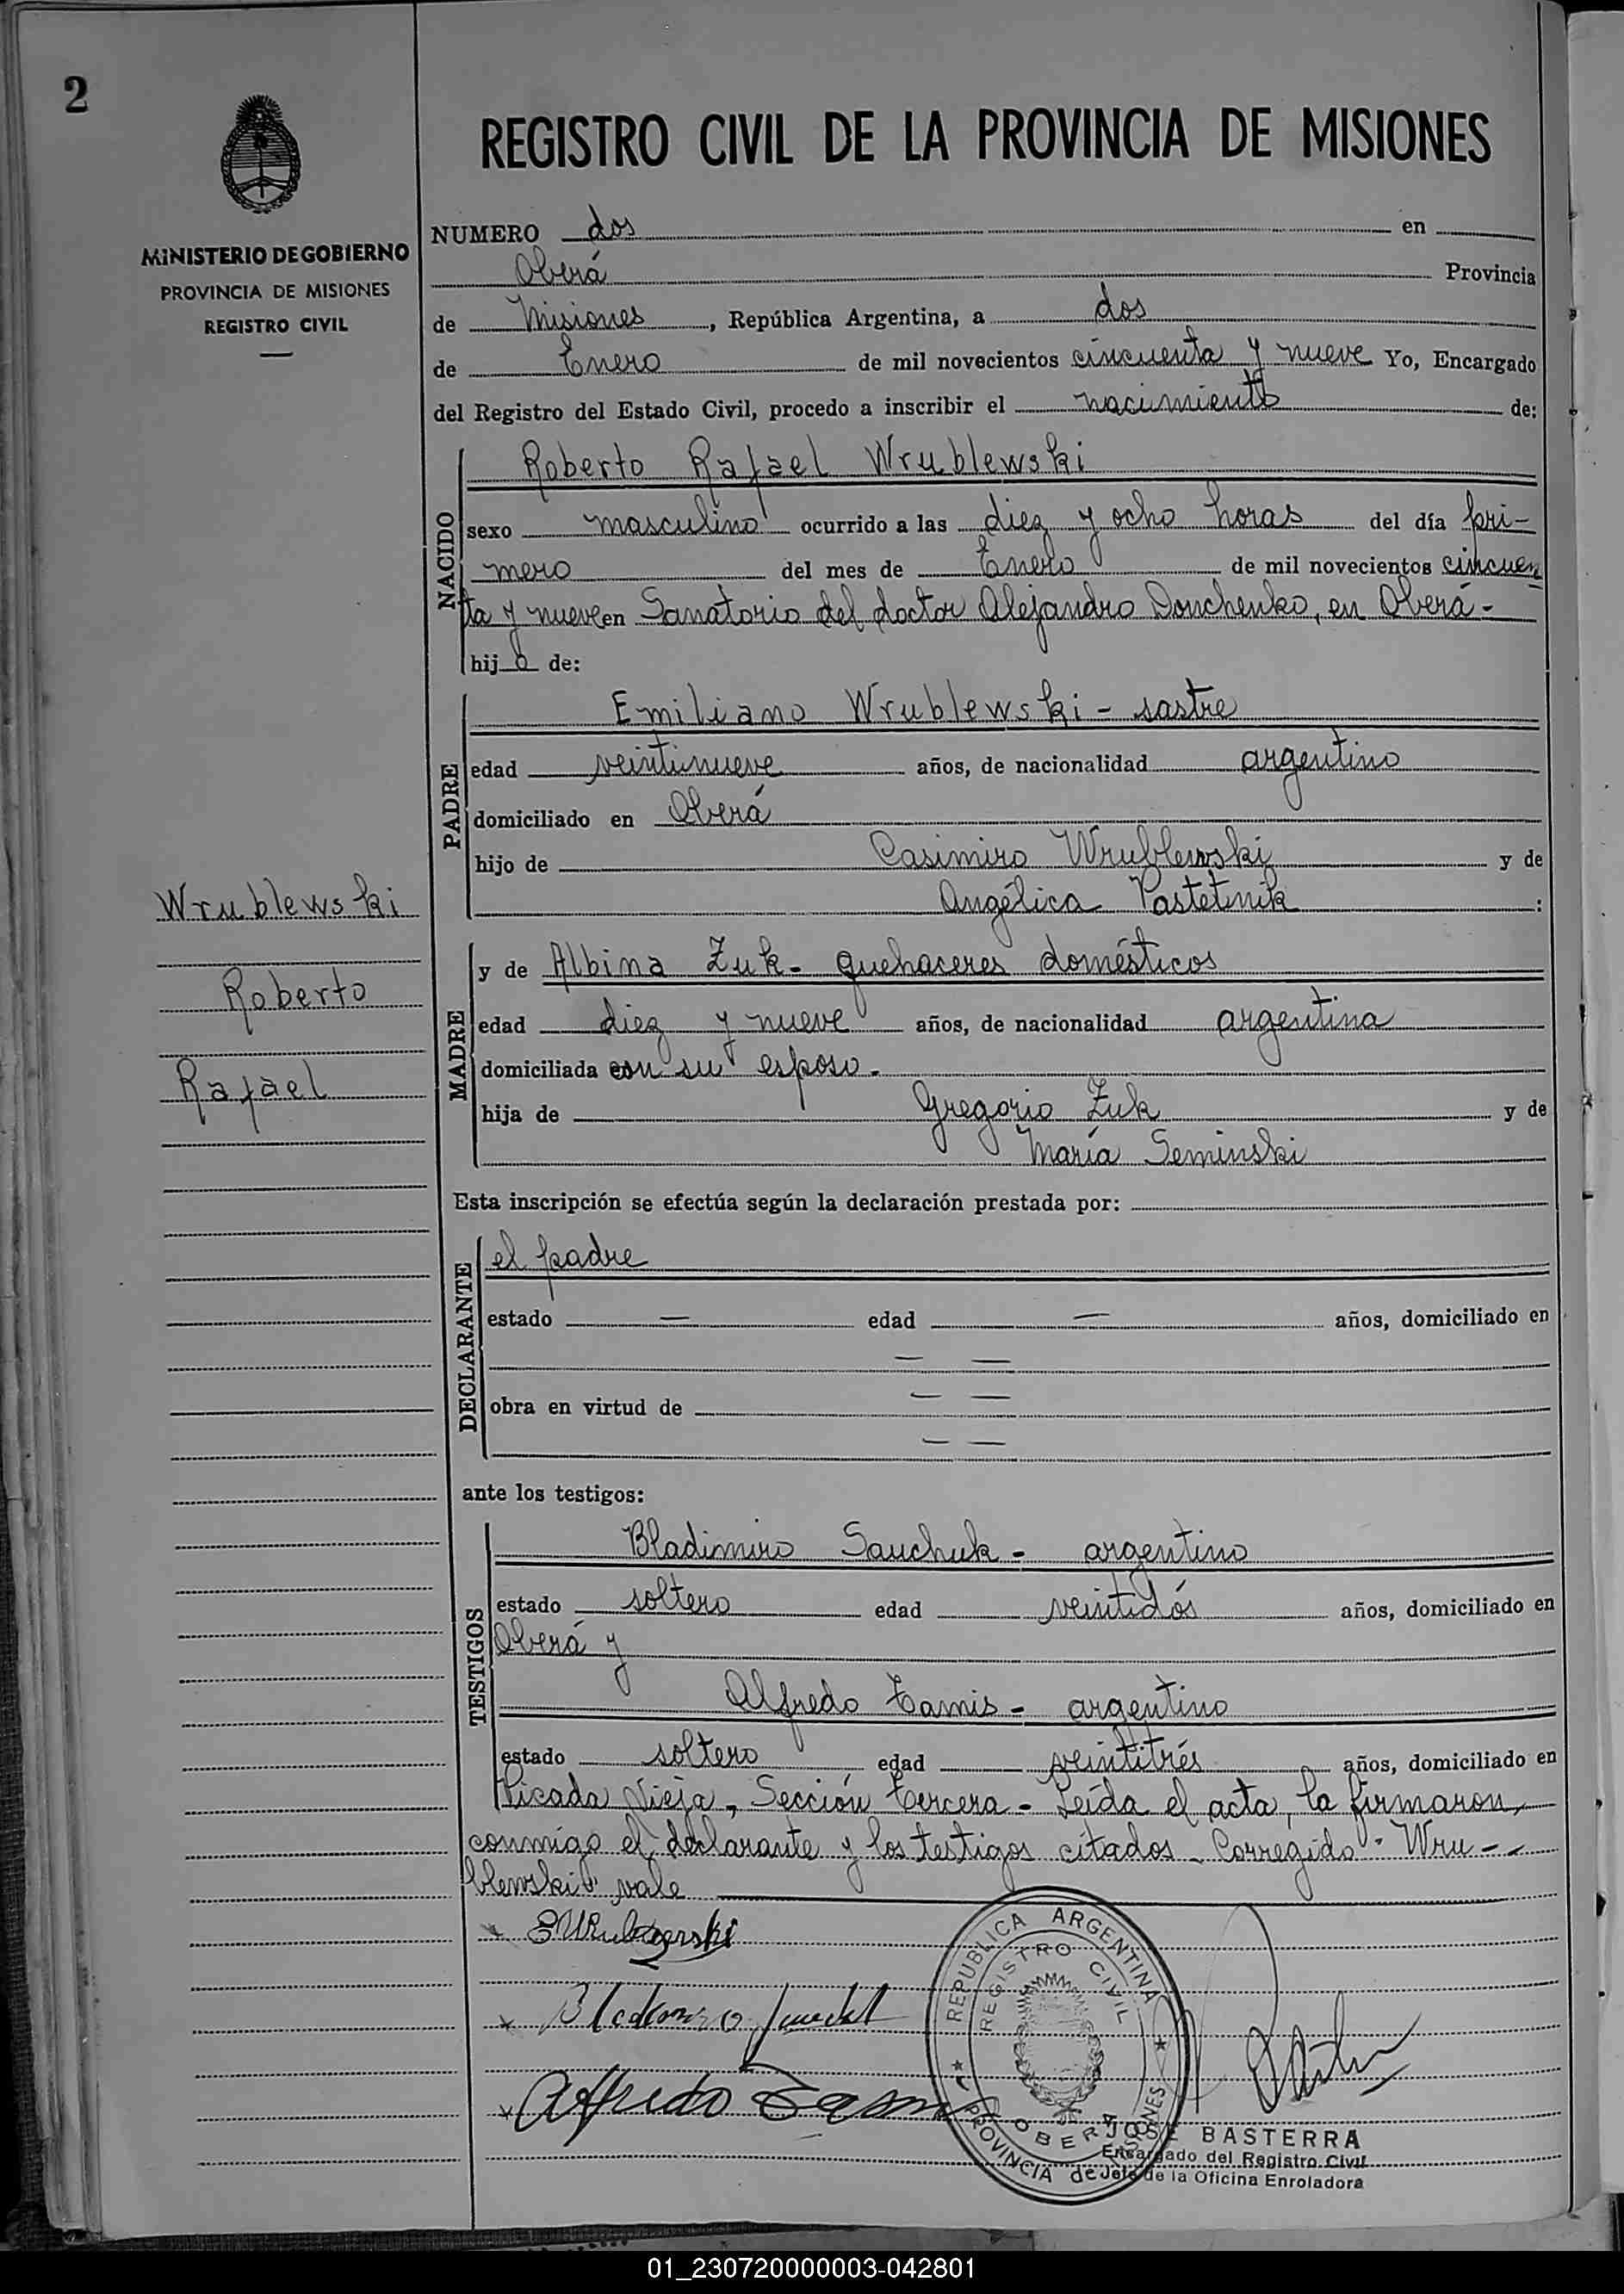 2
MINISTERIO DE GOBIERNO
PROVINCIA DE MISIONES
REGISTRO CIVIL
REGISTRO CIVIL DE LA PROVINCIA DE MISIONES
NUMERO dos en
Oberá Provincia
de Misiones, República Argentina, a dos
de Enero de mil novecientos cincuenta y nueve Yo, Encargado
del Registro del Estado Civil, procedo a inscribir el nacimiento de:
NACIDO
Roberto Rafael Wrublewski
sexo masculino ocurrido a las diez y ocho horas del día pri-
mero del mes de Enero de mil novecientos cincuen
ta y nueve en Sanatorio del doctor Alejandro Donchenko, en Oberá-
hijo de:
PADRE
Emiliano Wrublewski - sastre
edad veintinueve años, de nacionalidad argentino
domiciliado en Oberá
hijo de Casimiro Wrublewski y de
Angélica Pastetnik :
MADRE
y de Albina Zuk - quehaceres domésticos
edad diez y nueve años, de nacionalidad argentina
domiciliada con su esposo.
hija de Gregorio Zuk y de
María Seminski
Wrublewski
Roberto
Rafael
Esta inscripción se efectúa según la declaración prestada por:
DECLARANTE
el padre
estado — edad — años, domiciliado en
— —
obra en virtud de — —
— —
ante los testigos:
TESTIGOS
Bladimiro Sauchuk - argentino
estado soltero edad veintidós años, domiciliado en
Oberá y
Alfredo Tamis - argentino
estado soltero edad veintitrés años, domiciliado en
Picada Vieja, Sección tercera - Leída el acta, la firmaron
conmigo el declarante y los testigos citados - Corregido - Wru-
blewski" vale
Alfredo
REPUBLICA ARGENTINA
REGISTRO CIVIL
OBERA
PROVINCIA de MISIONES
JOSE BASTERRA
Encargado del Registro Civil
Jefe de la Oficina Enroladora
01_230720000003-042801